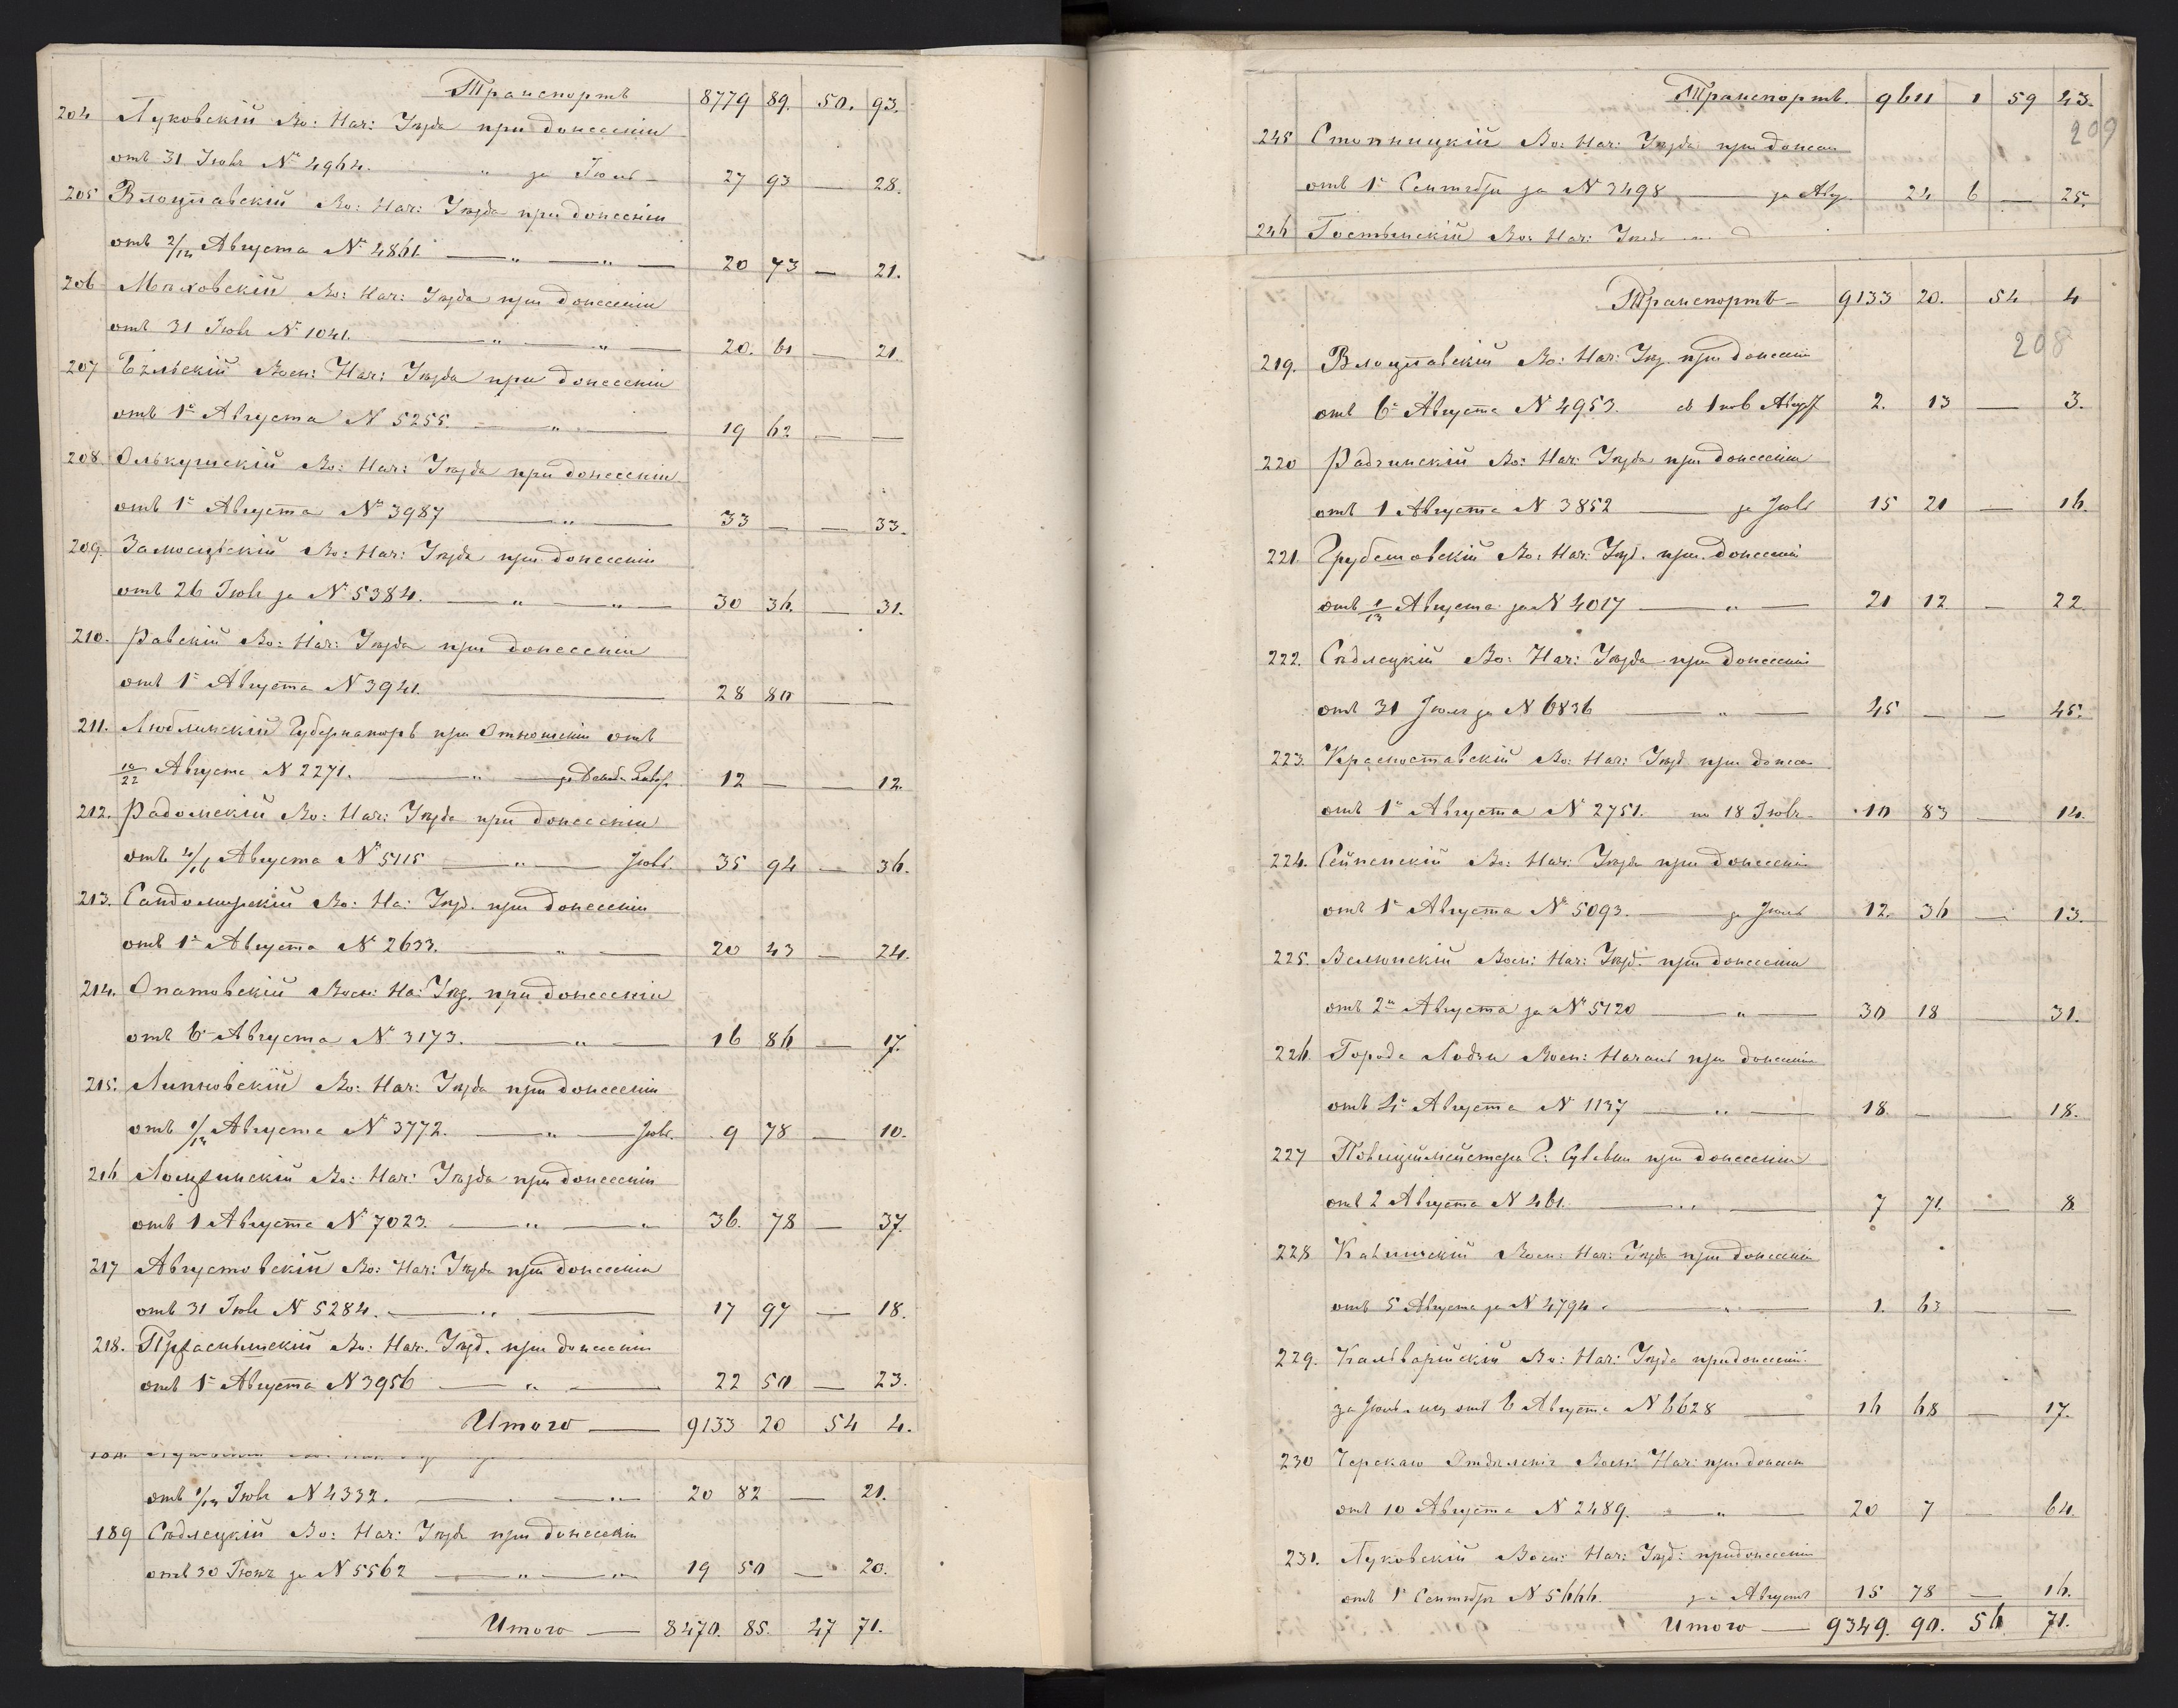 Транспортъ 8779 89. 50. 93.
204 Луковскій Во: Нач: Уѣзда при донесеніи
отъ 31 Іюля № 4964. " за Іюль — 27 93 — 28.
205 Влоцлавскій Во: Нач: Уѣзда при донесеніи
отъ 2/14 Августа № 4861. — " — " — 20 73 — 21.
206 Мѣховскій Во: Нач: Уѣзда при донесеніи
отъ 31 Іюля № 1041. — " — " — 20. 61 — 21.
207 Бѣльскій Воен: Нач: Уѣзда при донесеніи
отъ 1го Августа № 5255. — " — 19 62 — —
208. Олькушскій Во: Нач: Уѣзда при донесеніи
отъ 1го Августа № 3987 — " — 33 — — 33.
209. Замосцьскій Во: Нач: Уѣзда при донесеніи
отъ 26 Іюля за № 5384. — " — " — 30 36. — 31.
210. Равскій Во: Нач: Уѣзда при донесеніи
отъ 1го Августа № 3941. — 28 80 — —
211. Люблинскій Губернаторъ при Отношеніи отъ
10/22 Августа № 2271. — " — 12 — — 12.
212. Радомскій Во: Нач: Уѣзда при донесеніи
отъ 4/16 Августа № 5115 — " — Іюль. 35 94 — 36.
213. Сандомирскій Во: На: Уѣзд. при донесеніи
отъ 1го Августа № 2633. — " — 20 43 — 24.
214. Опатовскій Воен: На: Уѣз. при донесеніи
отъ 6го Августа № 3173. — " — 16 86 — 17.
215. Липновскій Во: Нач: Уѣзда при донесеніи
отъ 1/13 Августа № 3772. — " — Іюль. 9 78 — 10.
216 Ломжинскій Во: Нач: Уѣзда при донесеніи
отъ 1 Августа № 7023. — " — " 36. 78 — 37.
217 Августовскій Во: Нач: Уѣзда при донесеніи
отъ 31 Іюля № 5284. — " — 17 97 — 18.
218. Пржаснышскій Во: Нач. Уѣзд. при донесеніи
отъ 1го Августа № 3956 — " — 22 50 — 23.
Итого — 9133 20 54 4.
отъ 1/13 Іюля № 4332. — " — " — 20 82 — 21.
189 Сѣдлецкій Во: Нач: Уѣзда при донесеніи
отъ 30 Іюня за № 5562 — " — " 19 50 — 20.
Итого — 8470. 85. 47 71.
Транспортъ. 9611 1 59 43.
209
245 Стопницкій Во: Нач: Уѣзда при донесен
отъ 1го Сентября за № 3498 — за Авг. 24 6 — 25.
246 Гостынскій Во: Нач: Уѣзда
Транспортъ — 9133 20. 54 4
208
219. Влоцлавскій Во: Нач: Уѣз. при донесеніи
отъ 6го Августа № 4953. 2. 13 — 3.
220 Радзинскій Во: Нач: Уѣзда при донесеніи
отъ 1 Августа № 3852 — за Іюль 15 21 — 16.
221. Грубешовскій Во: Нач: Уѣзд. при донесеніи
отъ 1/13 Августа за № 4017 — " — 21 12 — 22.
222. Сѣдлецкій Во: Нач: Уѣзда при донесеніи
отъ 31 Іюля за № 6836 — " — 45 — — 45.
223. Красноставскій Во: Нач: Уѣзд при донесен
отъ 1го Августа № 2751. по 18 Іюля — 10 83 — 14.
224. Сейненскій Во: Нач: Уѣзда при донесеніи
отъ 1го Августа № 5093. — за Іюль 12. 36 — 13.
225. Велюнскій Воен: Нач: Уѣзд. при донесеніи
отъ 2го Августа за № 5120 — " — 30 18 — 31.
226 Города Лодзи Воен: Началь при донесеніи
отъ 4го Августа № 1137 — " — 18. — — 18.
227 Полиціймейстера Г. Сувалки при донесеніи
отъ 2 Августа № 461. — " — 7 71. — 8.
228 Калишскій Воен: Нач: Уѣзда при донесеніи
отъ 5 Августа за № 4794. — " — 1. 63 — —
229. Кальварійскій Во: Нач: Уѣзда при донесеніи
за Іюль. мц отъ 6 Августа № 6628 — 16 68 — 17.
230 Черскаго Отдѣленія Воен: Нач: при донесен
отъ 10 Августа № 2489. — " — 20 7 — 64.
231. Луковскій Воен: Нач: Уѣзд: при донесеніи
отъ 1го Сентября № 5666. за Августъ 15 78 — 16.
Итого — 9349. 90. 56 71.